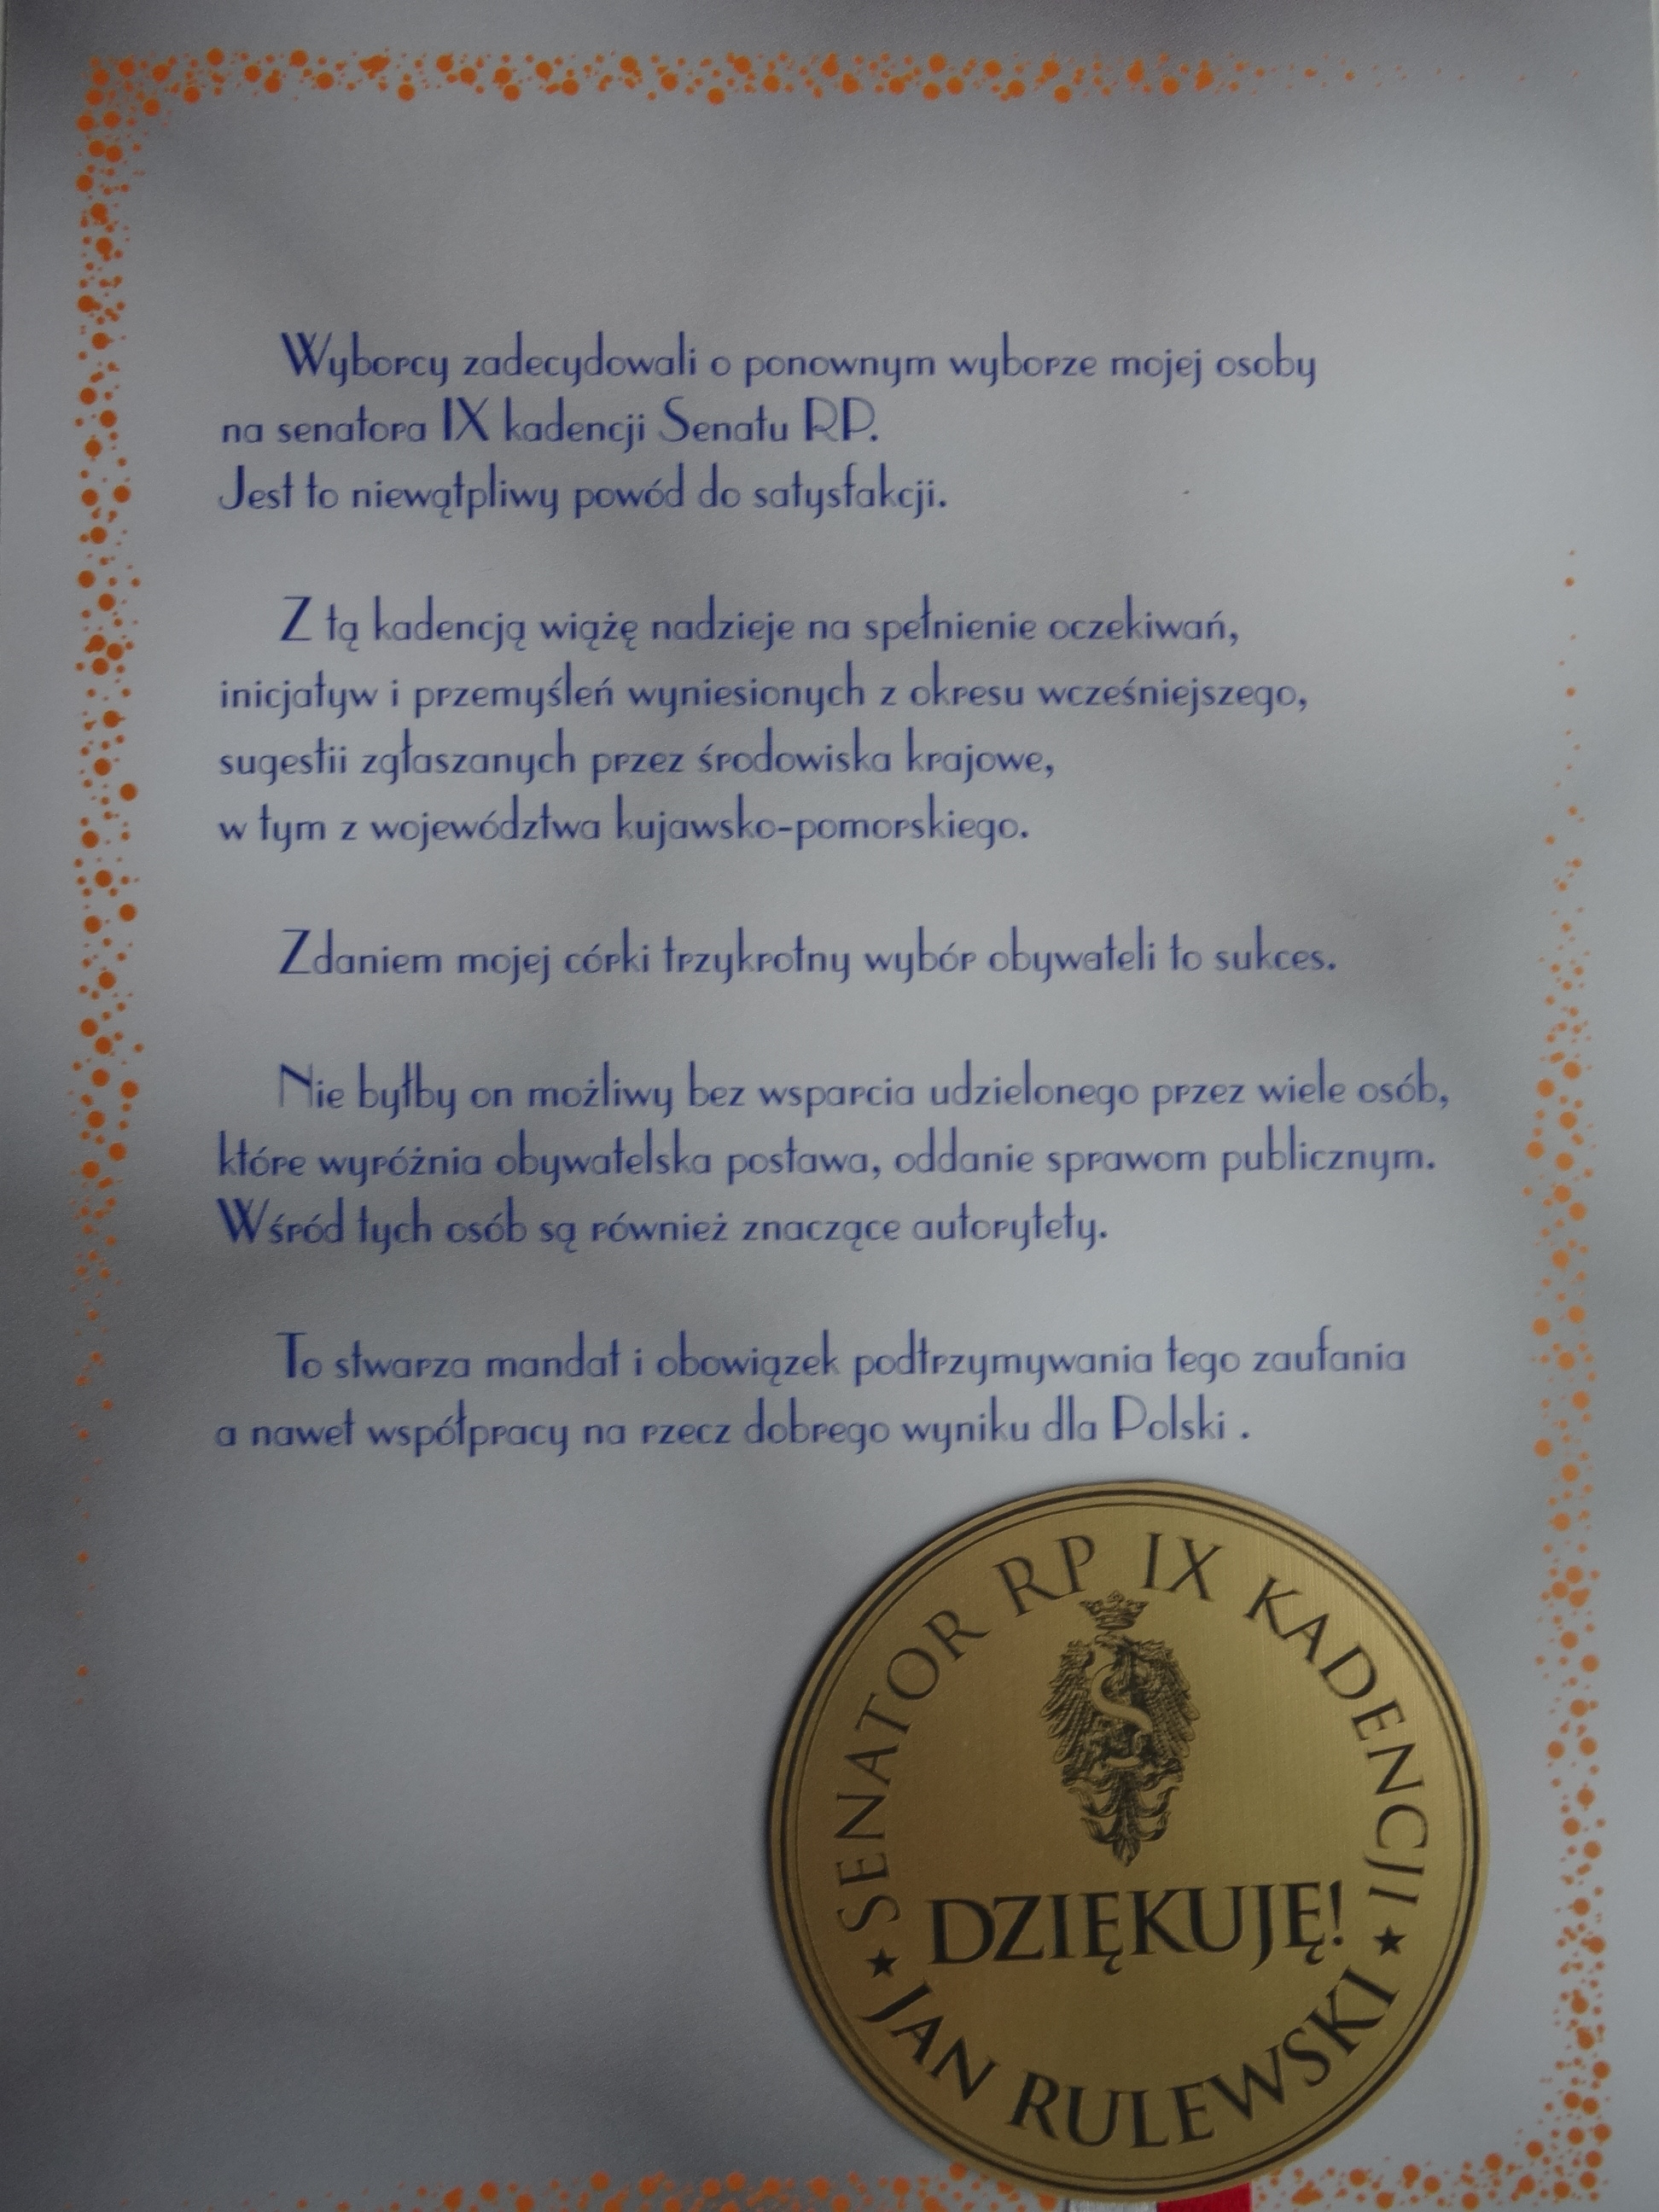 Wyborcy zadecydowali o ponownym wyborze mojej osoby
na senatora IX kadencji Senatu RP.
Jest to niewątpliwy powód do satysfakcji.
Z tą kadencją wiążę nadzieje na spełnienie oczekiwań,
inicjatyw i przemyśleń wyniesionych z okresu wcześniejszego,
sugestii zgłaszanych przez środowiska krajowe,
w tym z województwa kujawsko-pomorskiego.
Zdaniem mojej córki trzykrotny wybór obywateli to sukces.
Nie byłby on możliwy bez wsparcia udzielonego przez wiele osób,
które wyróżnia obywatelska postawa, oddanie sprawom publicznym.
Wśród tych osób są również znaczące autorytety.
To stwarza mandat i obowiązek podtrzymywania tego zaufania
a nawet współpracy na rzecz dobrego wyniku dla Polski .
SENATOR RP IX KADENCJI
S
DZIĘKUJĘ!
★ JAN RULEWSKI ★